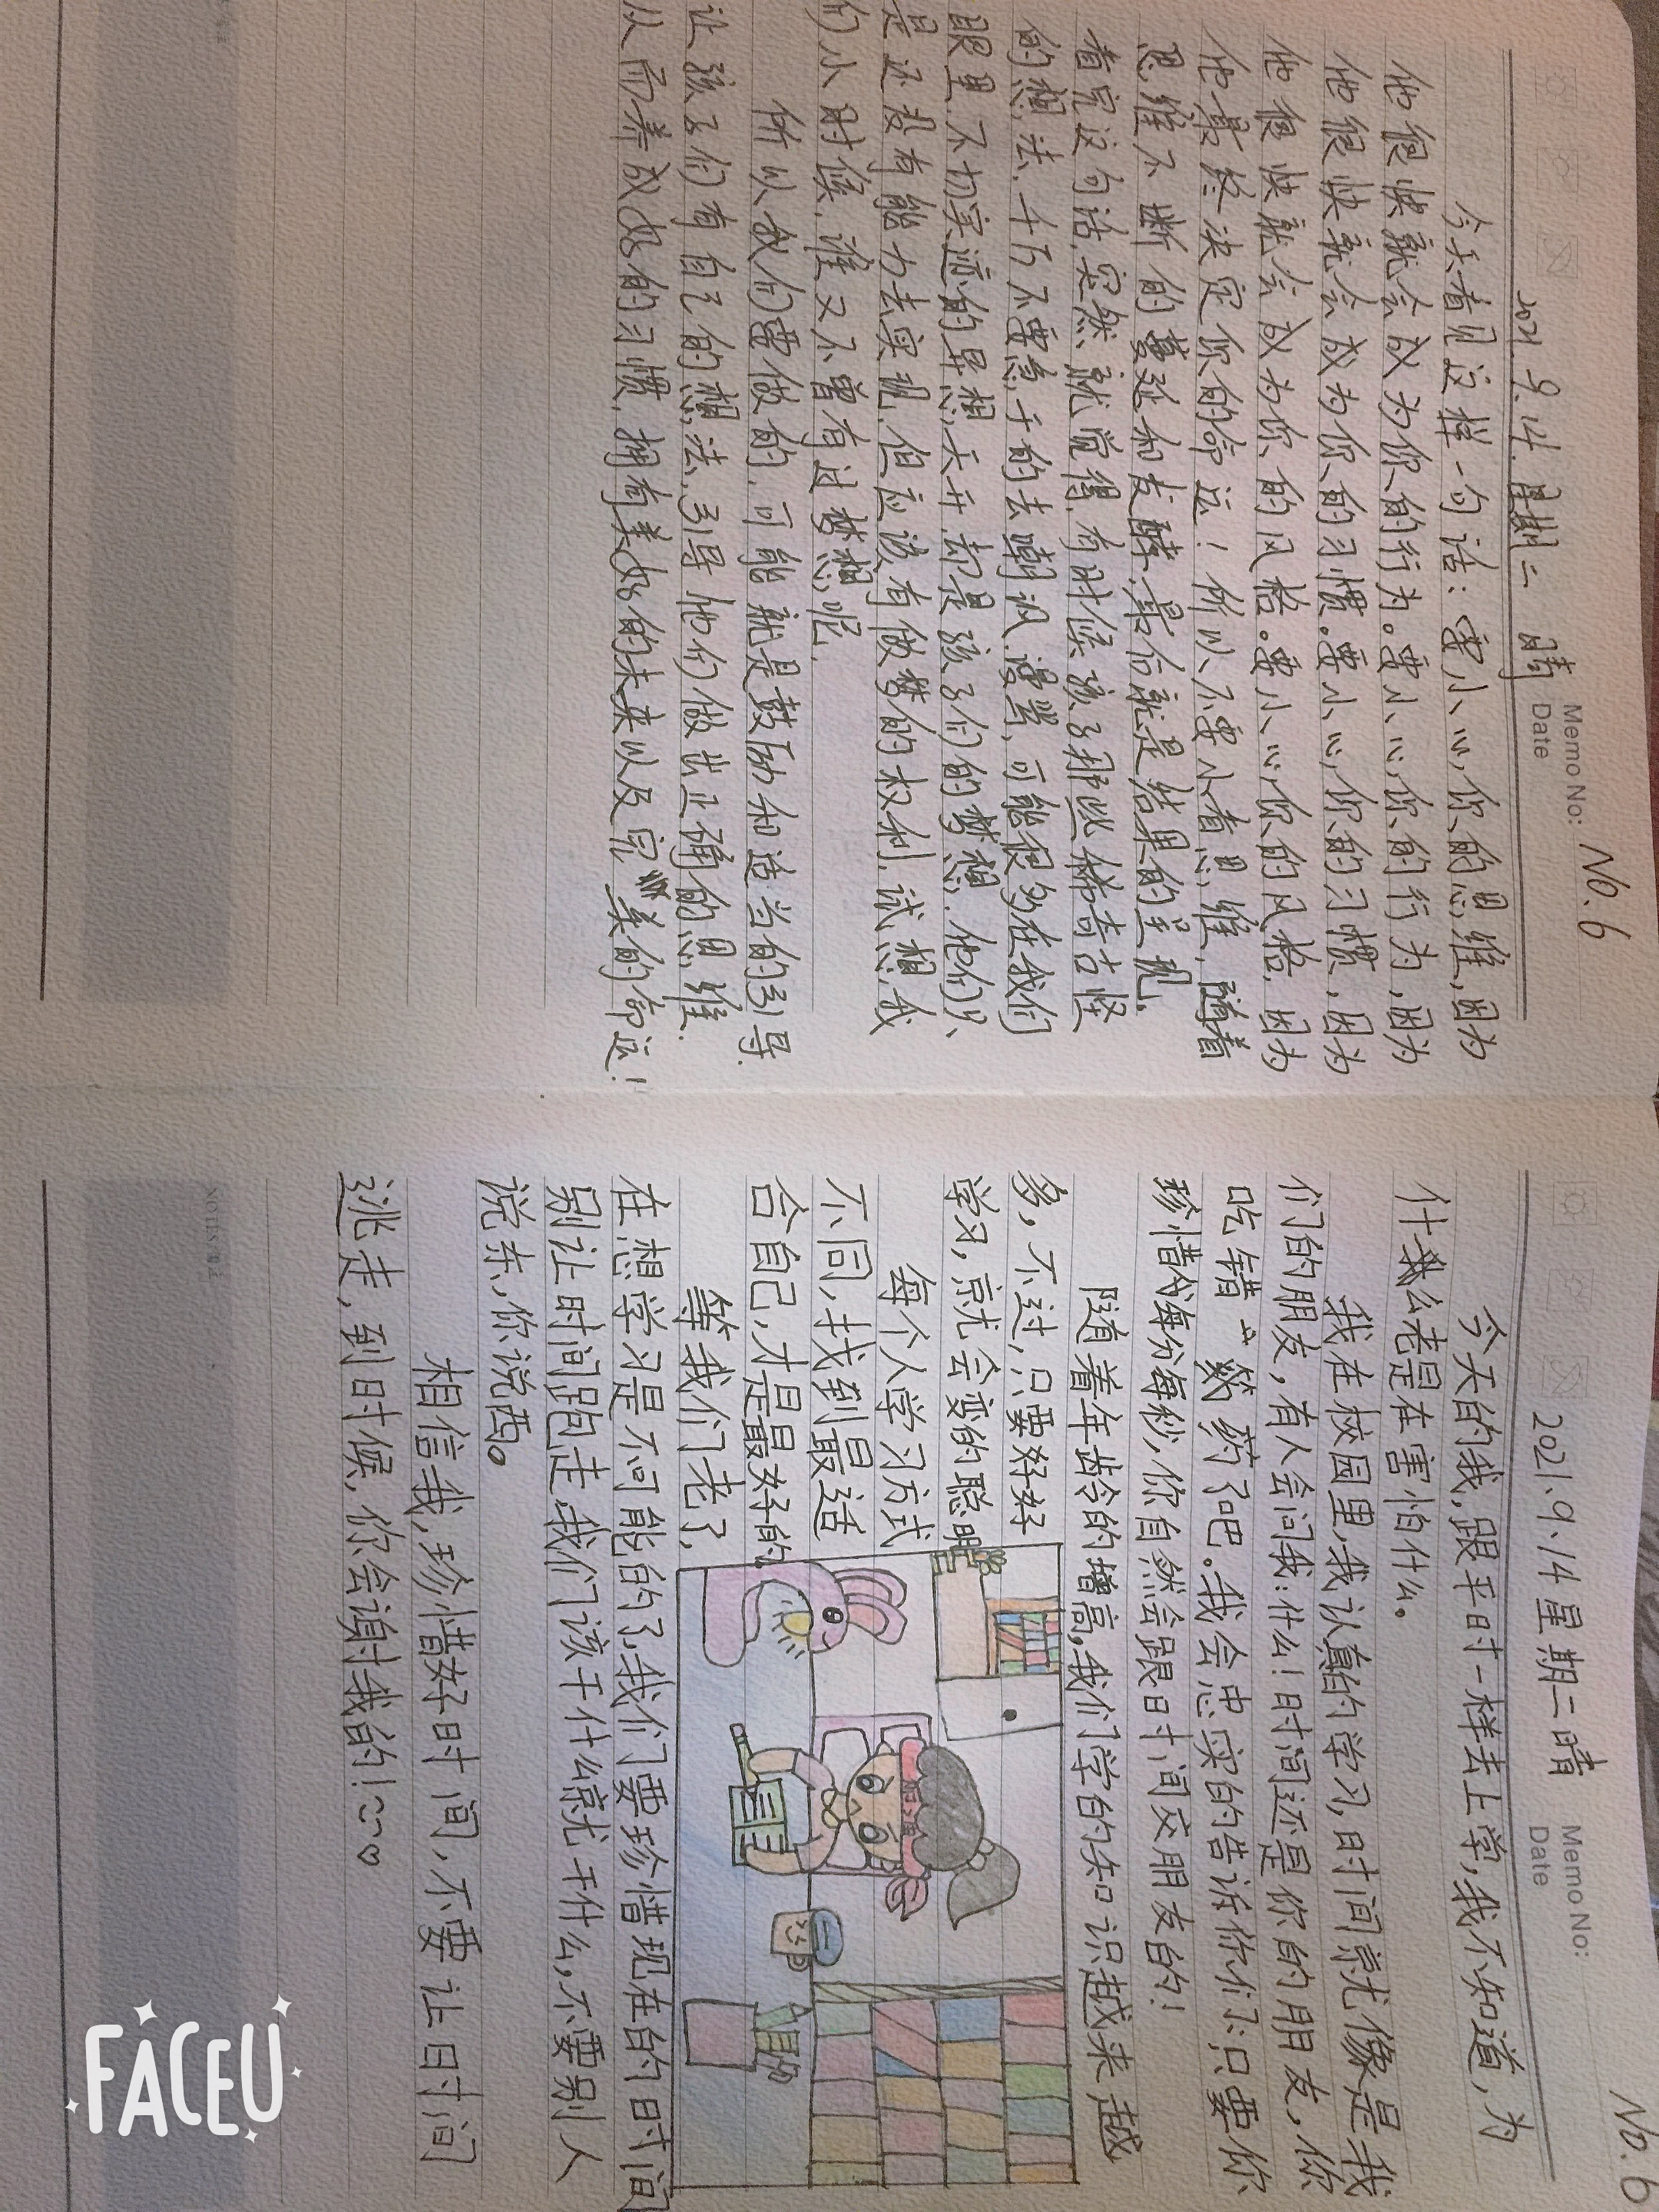 No.6
Memo No:
Date
2021.9.14. 星期二 晴
今天看见这样一句话：要小心你的思维,因为
他很快就会成为你的行为。要小心你的行为,因为
他很快就会成为你的习惯。要小心你的习惯,因为
他很快就会成为你的风格。要小心你的风格.因为
他最终决定你的命运！所以不要小看思维,随着
思维不断的蔓延和发酵.最后就是结果的呈现.
看完这句话.突然就觉得.有时候孩子那些稀奇古怪
的想法.千万不要急于的去嘲讽.谩骂,可能很多在我们
眼里.不切实际的异想天开.却是孩子们的梦想.他们只
是还没有能力去实现.但应该有做梦的权利.试想,我
们小时候.谁又不曾有过梦想呢.
所以我们要做的.可能就是鼓励和适当的引导.
让孩子们有自己的想法.引导他们做出正确的思维.
从而养成好的习惯.拥有美好的未来以及完美的命运！
No.6
Memo No:
Date
2021.9.14 星期二晴
今天的我,跟平时一样去上学,我不知道,为
什么老是在害怕什么.
我在校园里,我认真的学习,时间就像是我
们的朋友,有人会问我:什么!时间还是你的朋友,你
吃错药了吧。我会忠实的告诉你们:只要你
珍惜每分每秒,你自然会跟时间交朋友的!
随着年龄的增高,我们学的知识越来越
多,不过,只要好好
学习,就会变的聪明
每个人学习方式
不同,找到最适
合自己,才是最好的
等我们老了,
在想学习是不可能的了,我们要珍惜现在的时间
别让时间跑走,我们该干什么就干什么,不要别人
说东,你说西。
相信我,珍惜好时间,不要让时间
逃走,到时候,你会谢我的!
NOTES
FACEU